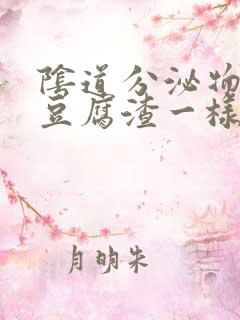 陰道分泌物
豆腐渣一樣
月明朱